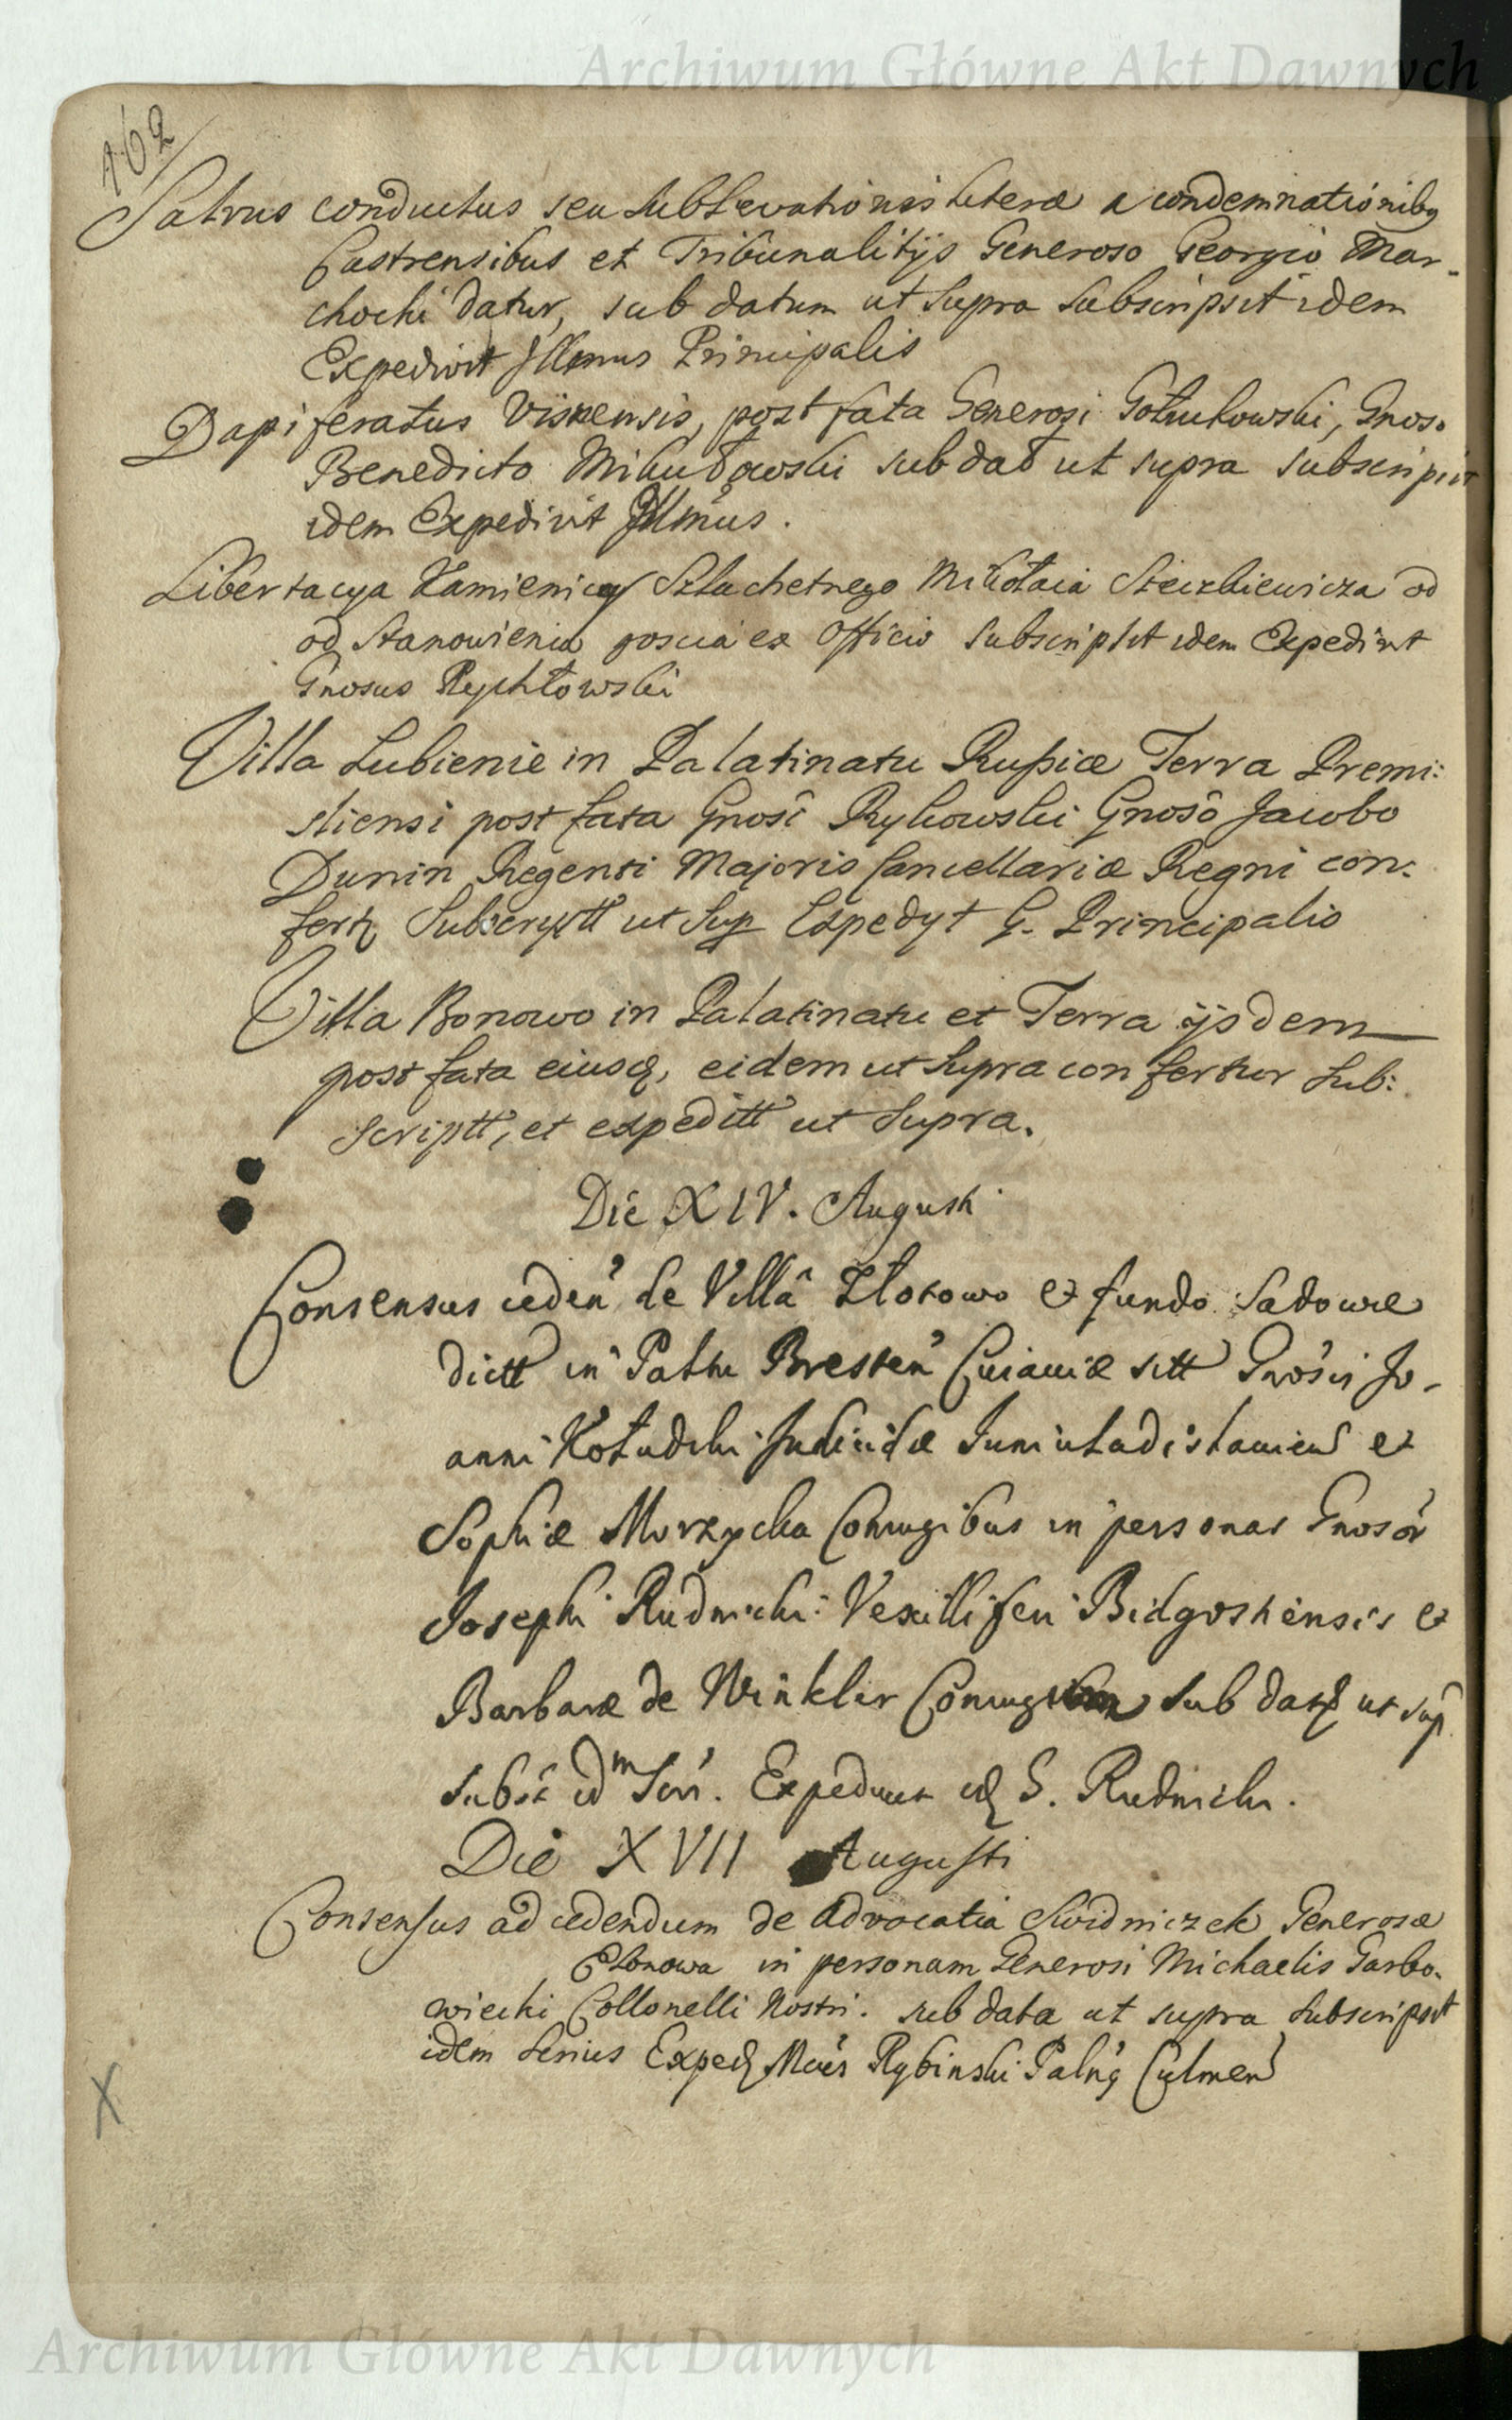 Archiwum Główne Akt Dawnych
162
Salvus conductus seu sublevationis literæ a condemnationibq
Castrensibus et Tribunalitijs Generoso Georgio Mar-
chocki datur, sub datum ut supra subscripsit idem
Expedivit Illmus Principalis
Dapiferatus Visnensis, post fata Generosi Gołuchowski, Gnoso
Benedicto Mikułowski sub dat ut supra subscripsit
idem Expedivit Illmus.
Libertacya Kamienicy Szlachetnego Mikołaia Steczkiewicza od
od stanowienia goscia ex officio subscripsit idem Expedivit
Gnosus Rychłowski
Villa Lubienie in Palatinatu Russiæ Terra Premi:
sliensi post fata Gnosi Rykowski Gnoso Jacobo
Dunin Regenti Majoris Cancellariæ Regni con:
fertr Subscryptt ut sup Expedyt G. Principalis
Villa Bonowo in Palatinatu et Terra ijsdem
post fata eiusq, eidem ut supra confertur sub:
scriptt, et expeditt ut supra.
Die XIV. Augusti
Consensus ceden de Villâ Złotowo et fundo Sadowie
dictt in Pattu Bresten Cuiaviæ sitt Gnosis Jo-
anni Kołudzki Judici Juniuladislavien et
Sophiæ Morzycka Coniugibus in personas Gnosor
Josephi Rudnicki Vexilliferi Bidgostiensis et
Barbaræ de Winkler Coniugum sub dat ut sup
Subsc id m Seri. Expedivit G. Rudnicki.
Die XVII Augusti
Consensus ad cedendum de advocatia Swidniczek Generosæ
in personam Generosi Michaelis Garbo-
wiecki Collonelli Nostri. sub data ut supra subscripsit
idem Serius Exped Mcus Rybinski Palnq Culmen
X
Archiwum Główne Akt Dawnych